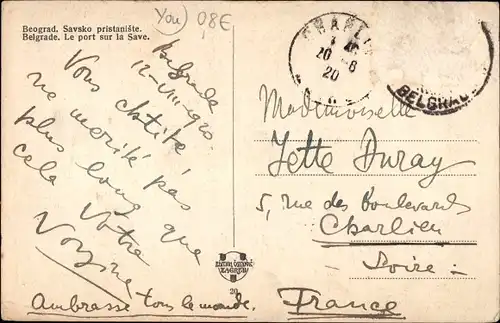 You) 08E
Beograd. Savsko pristanište.
Belgrade. Le port sur la Save.
Belgrade
12-VIII-1920.
Vous
ne merité pas
plus long que
cela
Votre
Ambrasse tous le monde.
CHARLIEU
20 -8
20
BELGRADE
Mademoiselle
Jette Duray
5, rue des Boulevards
Charlieu
Loire:
France
ZAGREB
20